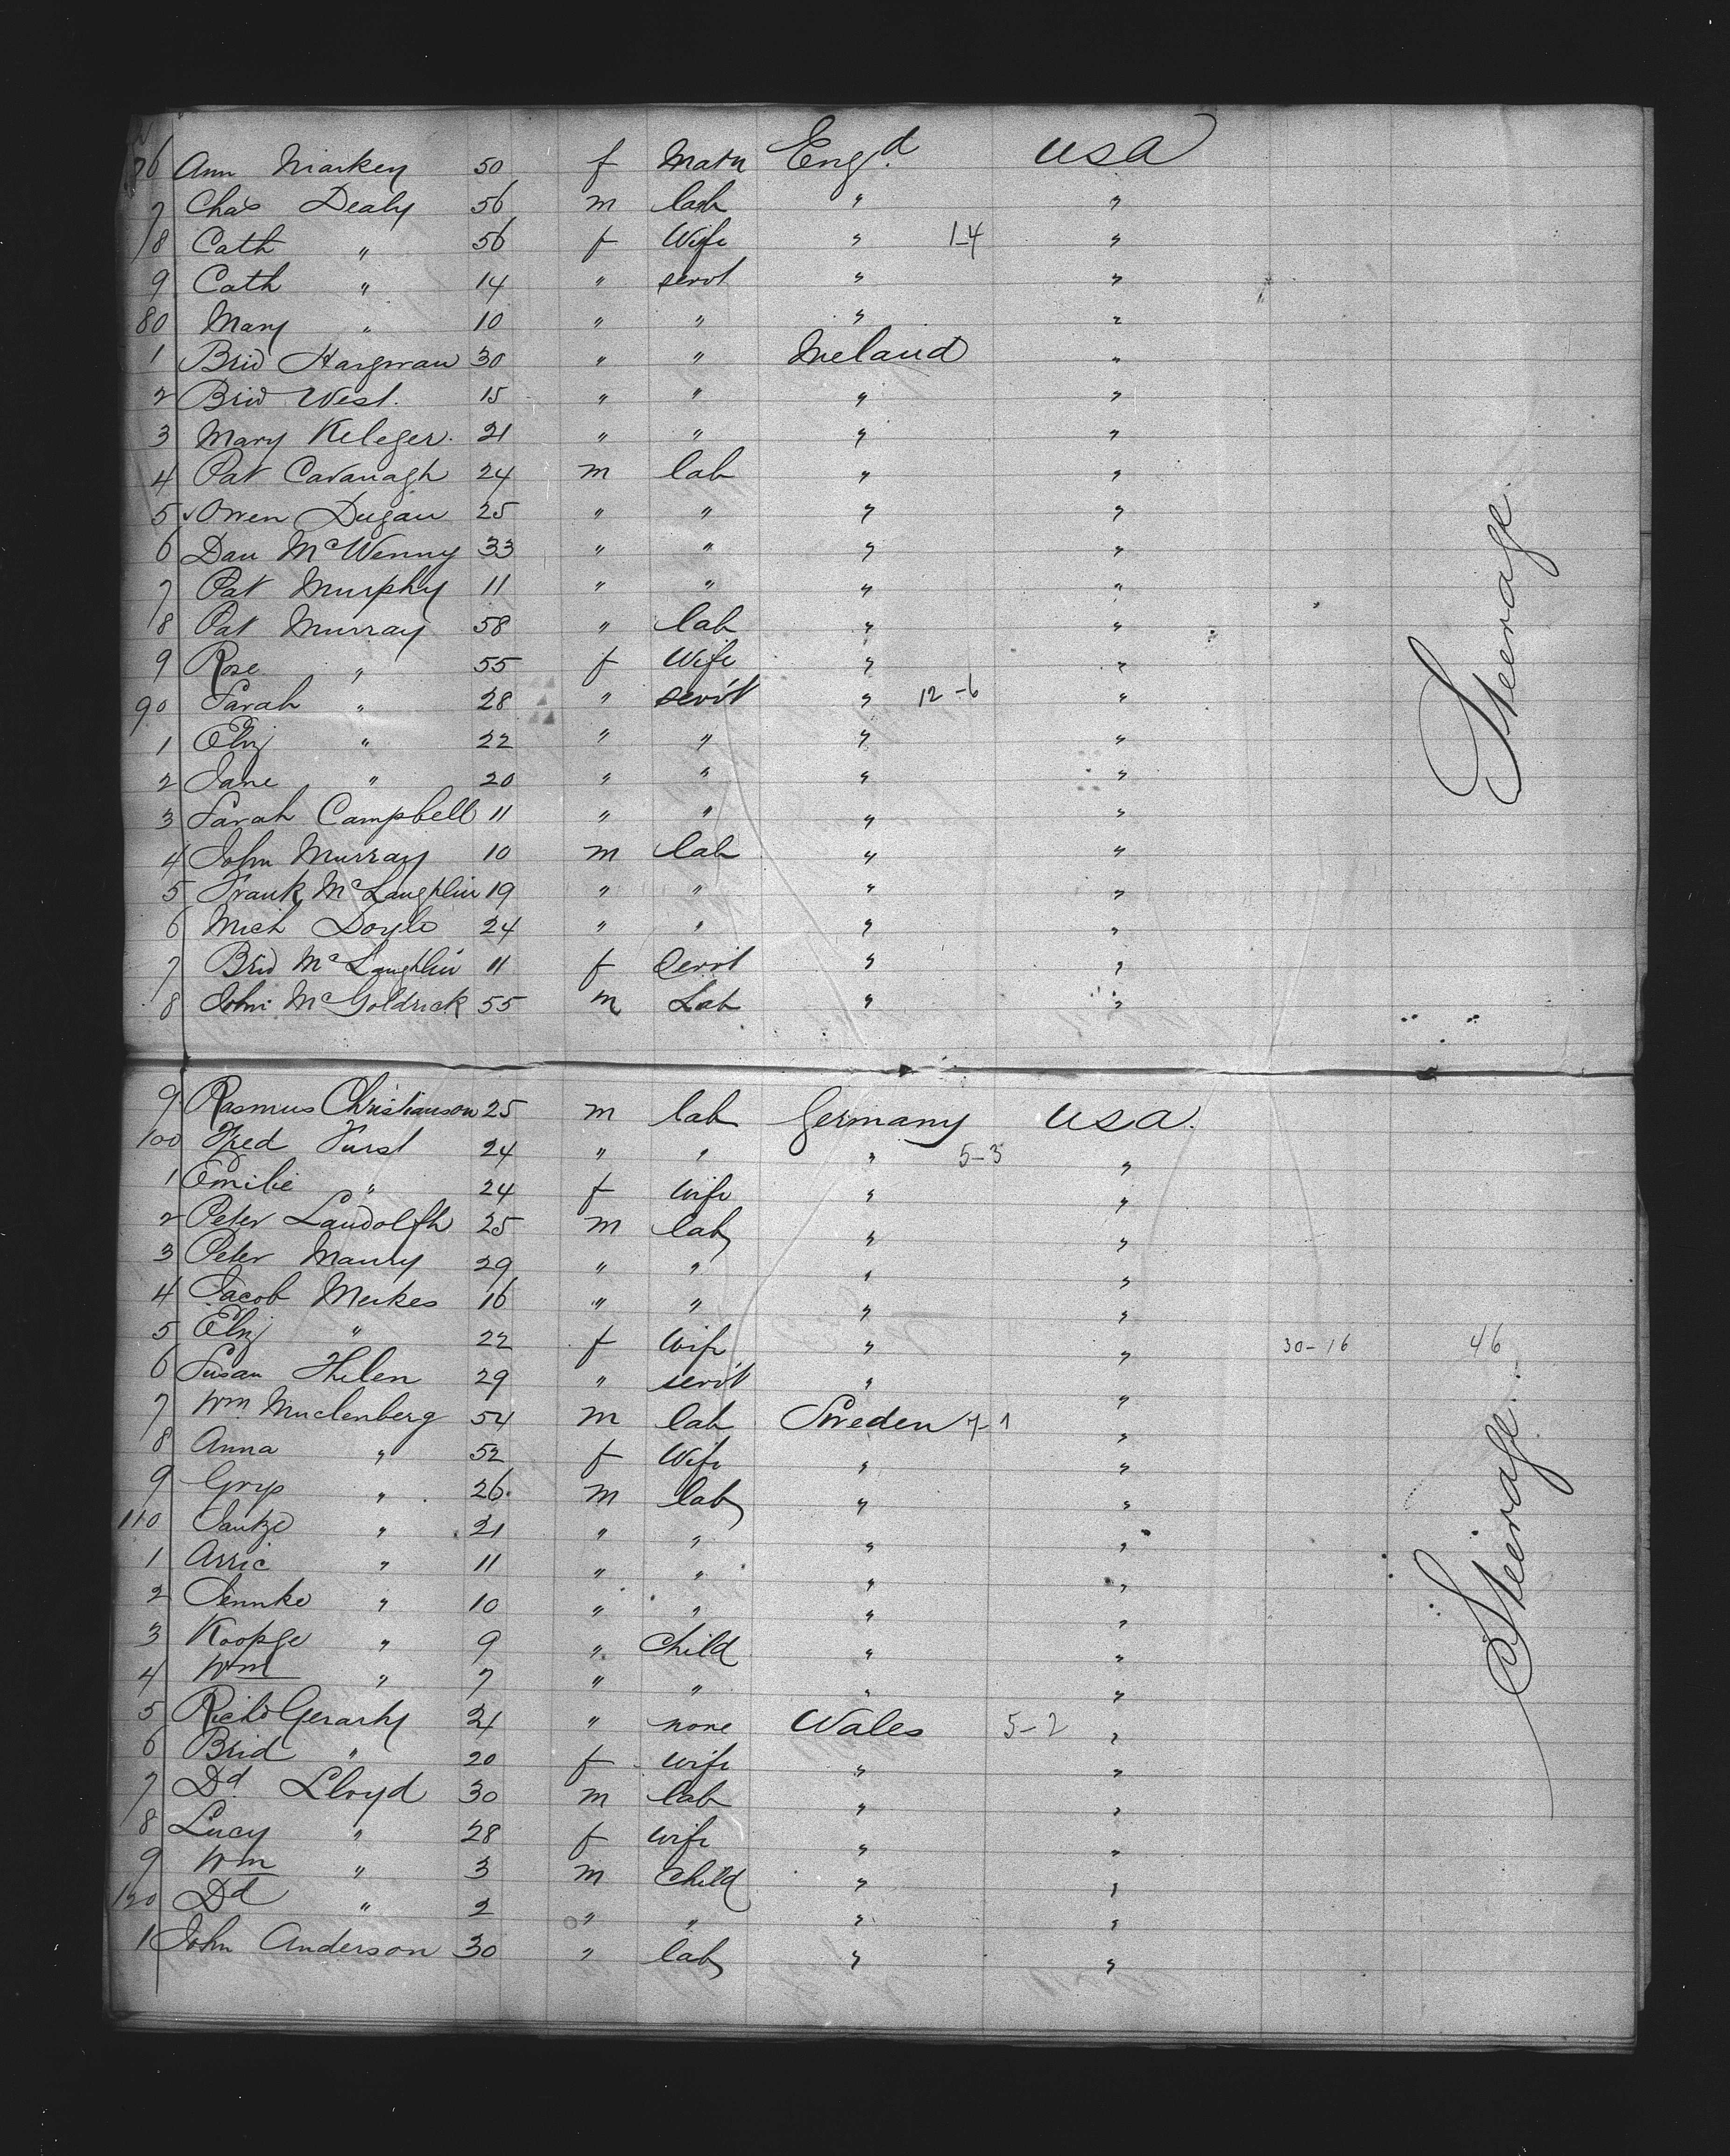 76 Ann Markey 50 f Matn Engd. USA
7 Chas Dealy 56 m lab " "
8 Cath " 56 f Wife " 1-4 "
9 Cath " 14 " servt " "
80 Mary " 10 " " " "
1 Brid Hargwan 30 " " Ireland "
2 Brid West. 15 " " " "
3 Mary Keleger. 21 " " " "
4 Pat Cavanagh 24 m lab " "
5 Owen Dugan 25 " " " "
6 Dan McWenny 33 " " " "
7 Pat Murphy 11 " " " "
8 Pat Murray 58 " lab " "
9 Rose " 55 f Wife " "
90 Sarah " 28 " servt " 12-6 "
1 Eliz " 22 " " " "
2 Jane " 20 " " " "
3 Sarah Campbell 11 " " " "
4 John Murray 10 m lab " "
5 Frank McLaughlin 19 " " " "
6 Mich Doyle 24 " " " "
7 Brid McLaughlin 11 f Servt " "
8 John McGoldrick 55 m Lab " "
Steerage.
9 Rasmus Christianson 25 m lab Germany USA.
100 Fred Furst 24 " " " 5-3 "
1 Emilie " 24 f wife " "
2 Peter Landolfh 25 m lab " "
3 Peter Maury 29 " " " "
4 Jacob Merkes 16 " " " "
5 Eliz " 22 f wife " " 30-16 46
6 Susan Thelen 29 " servt " "
7 Wm Muclenberg 54 m lab Sweden 7-1 "
8 Anna " 52 f Wife " "
9 Gryp " 26. m lab " "
110 Jantze " 21 " " " "
1 Arric " 11 " " " "
2 Jennke " 10 " " " "
3 Koopge " 9 " Child " "
4 Wm " 7 " " " "
5 Richd Gerarty 21 " none Wales 5-2 "
6 Brid " 20 f wife " "
7 Dd Lloyd 30 m lab " "
8 Lucy " 28 f wife " "
9 Wm " 3 m Child " "
120 Dd " 2 " " " "
1 John Anderson 30 " lab " "
Steerage.